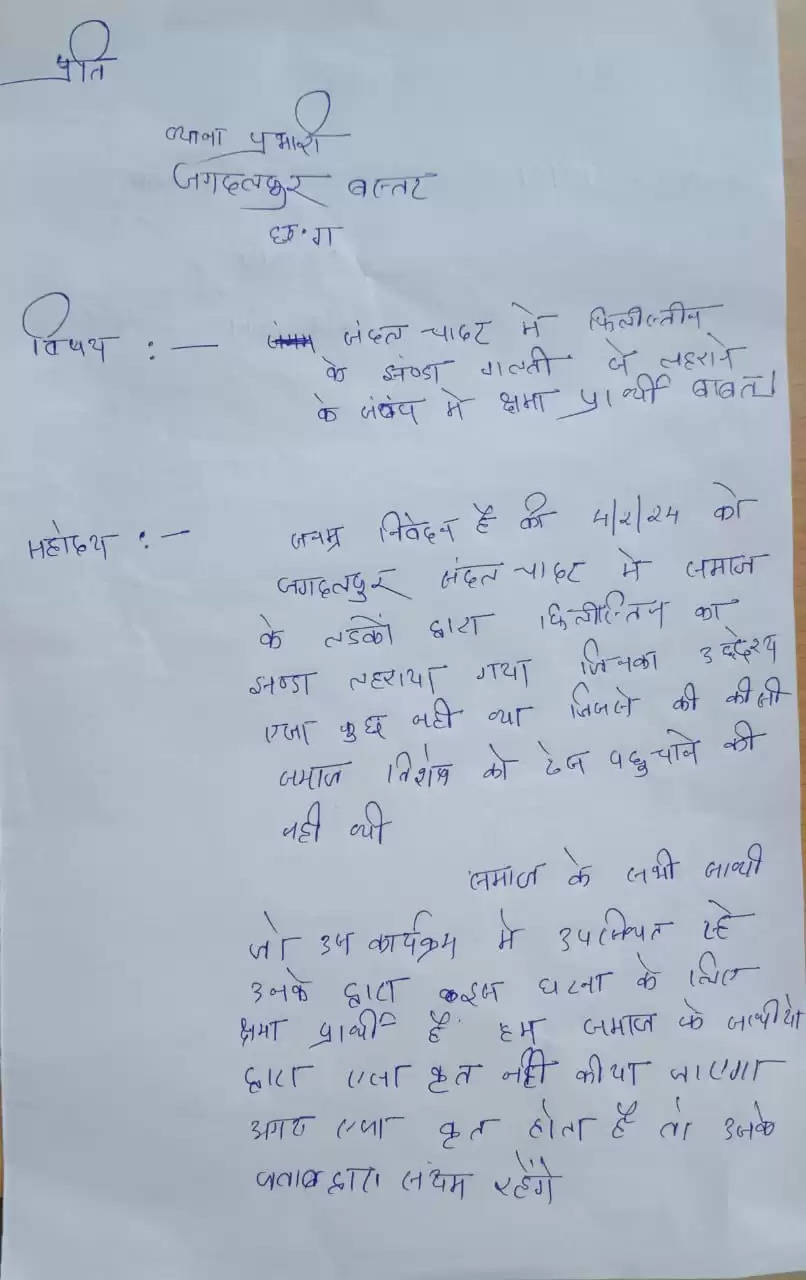 प्रति
थाना प्रभारी
जगदलपुर बस्तर
छ.ग
विषय :— संदल चादर मे फिलीस्तीन
के झण्डा गलती से लहराने
के संबंध मे क्षमा प्रार्थी बाबत।
महोदय :— सनम्र निवेदन है की 4/2/24 को
जगदलपुर संदल चादर मे समाज
के लडकों द्वारा फिलीस्तिन का
झण्डा लहराया गया जिसका उद्देश्य
एसा कुछ नही था जिससे की कीसी
समाज विशेष को ठेस पहुचाने की
नही थी
समाज के सभी साथी
जो उस कार्यक्रम मे उपस्थित रहे
उनके द्वारा इस घटना के लिए
क्षमा प्रार्थी है हम समाज के साथीयो
द्वारा एसा कृत नही कीया जाएगा
अगर एसा कृत होता है तो उसके
द्वारा रहेंगे